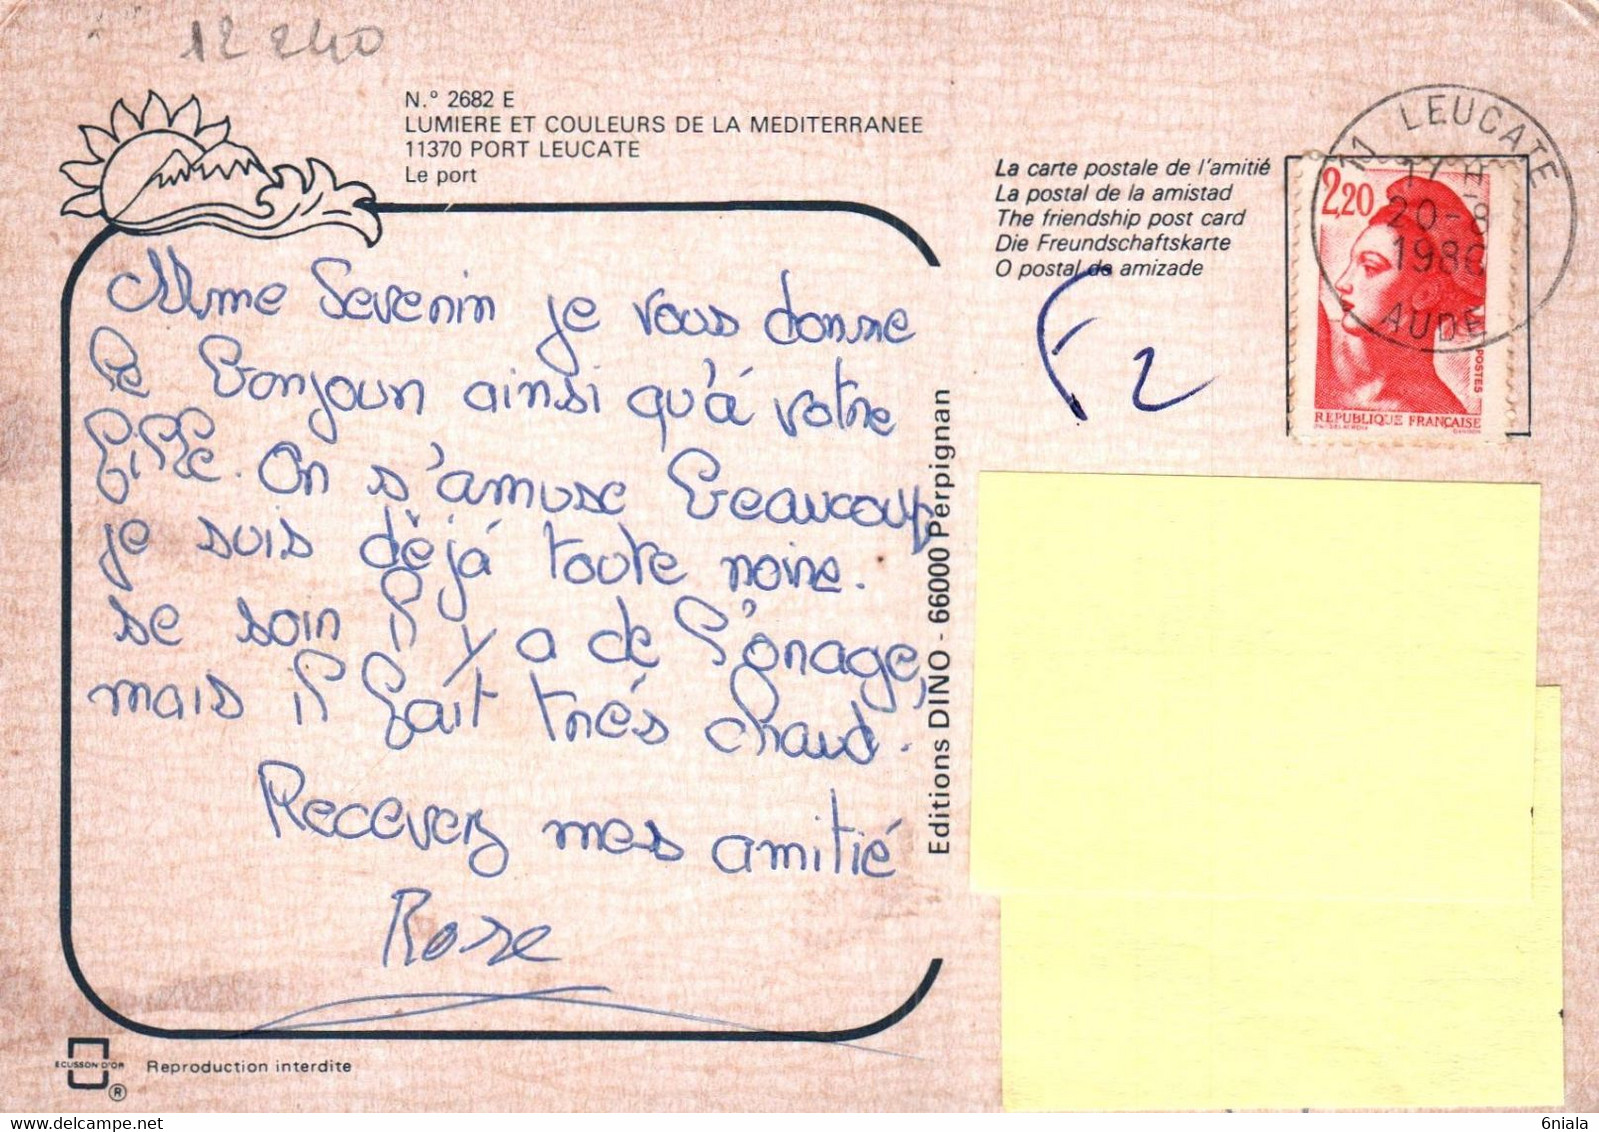 12240
N.° 2682 E
LUMIERE ET COULEURS DE LA MEDITERRANEE
11370 PORT LEUCATE
Le port
La carte postale de l'amitié
La postal de la amistad
The friendship post card
Die Freundschaftskarte
O postal da amizade
11 LEUCATE
17 H
20-8
1986
AUDE
2,20
POSTES
REPUBLIQUE FRANÇAISE
F2
Mme Severin je vous donne
le bonjour ainsi qu'á votre
fille. On s'amuse beaucoup
je suis déjá toute noire.
se soir il y a de l'orage,
mais il fait trés chaud.
Recevez mes amitié
Rose
Editions DINO - 66000 Perpignan
ECUSSON D'OR
®
Reproduction interdite
delcampe.net
6niala